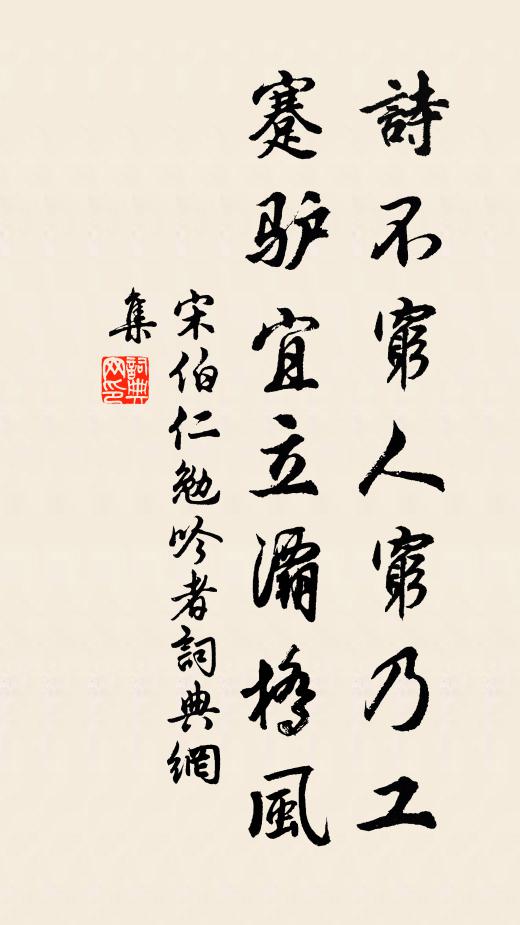 詩不窮人窮乃工
蹇驴宜立灞橋風
宋伯仁勉吟者詞典網
集
詞典
网印